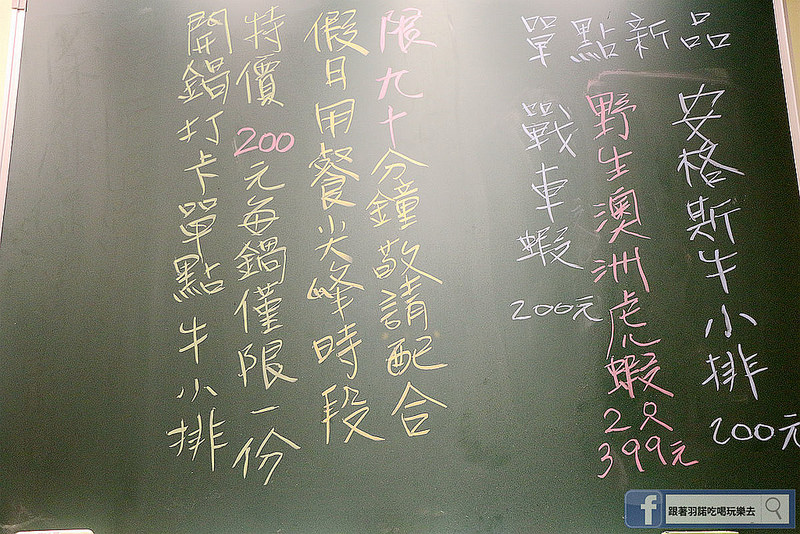 開鍋打卡單點牛小排
特價200元每鍋僅限一份
假日用餐尖峰時段
限九十分鐘敬請配合
單點新品
戰車蝦
200元
野生澳洲虎蝦
2只
399元
安格斯牛小排
200元
跟著羽諾吃喝玩樂去